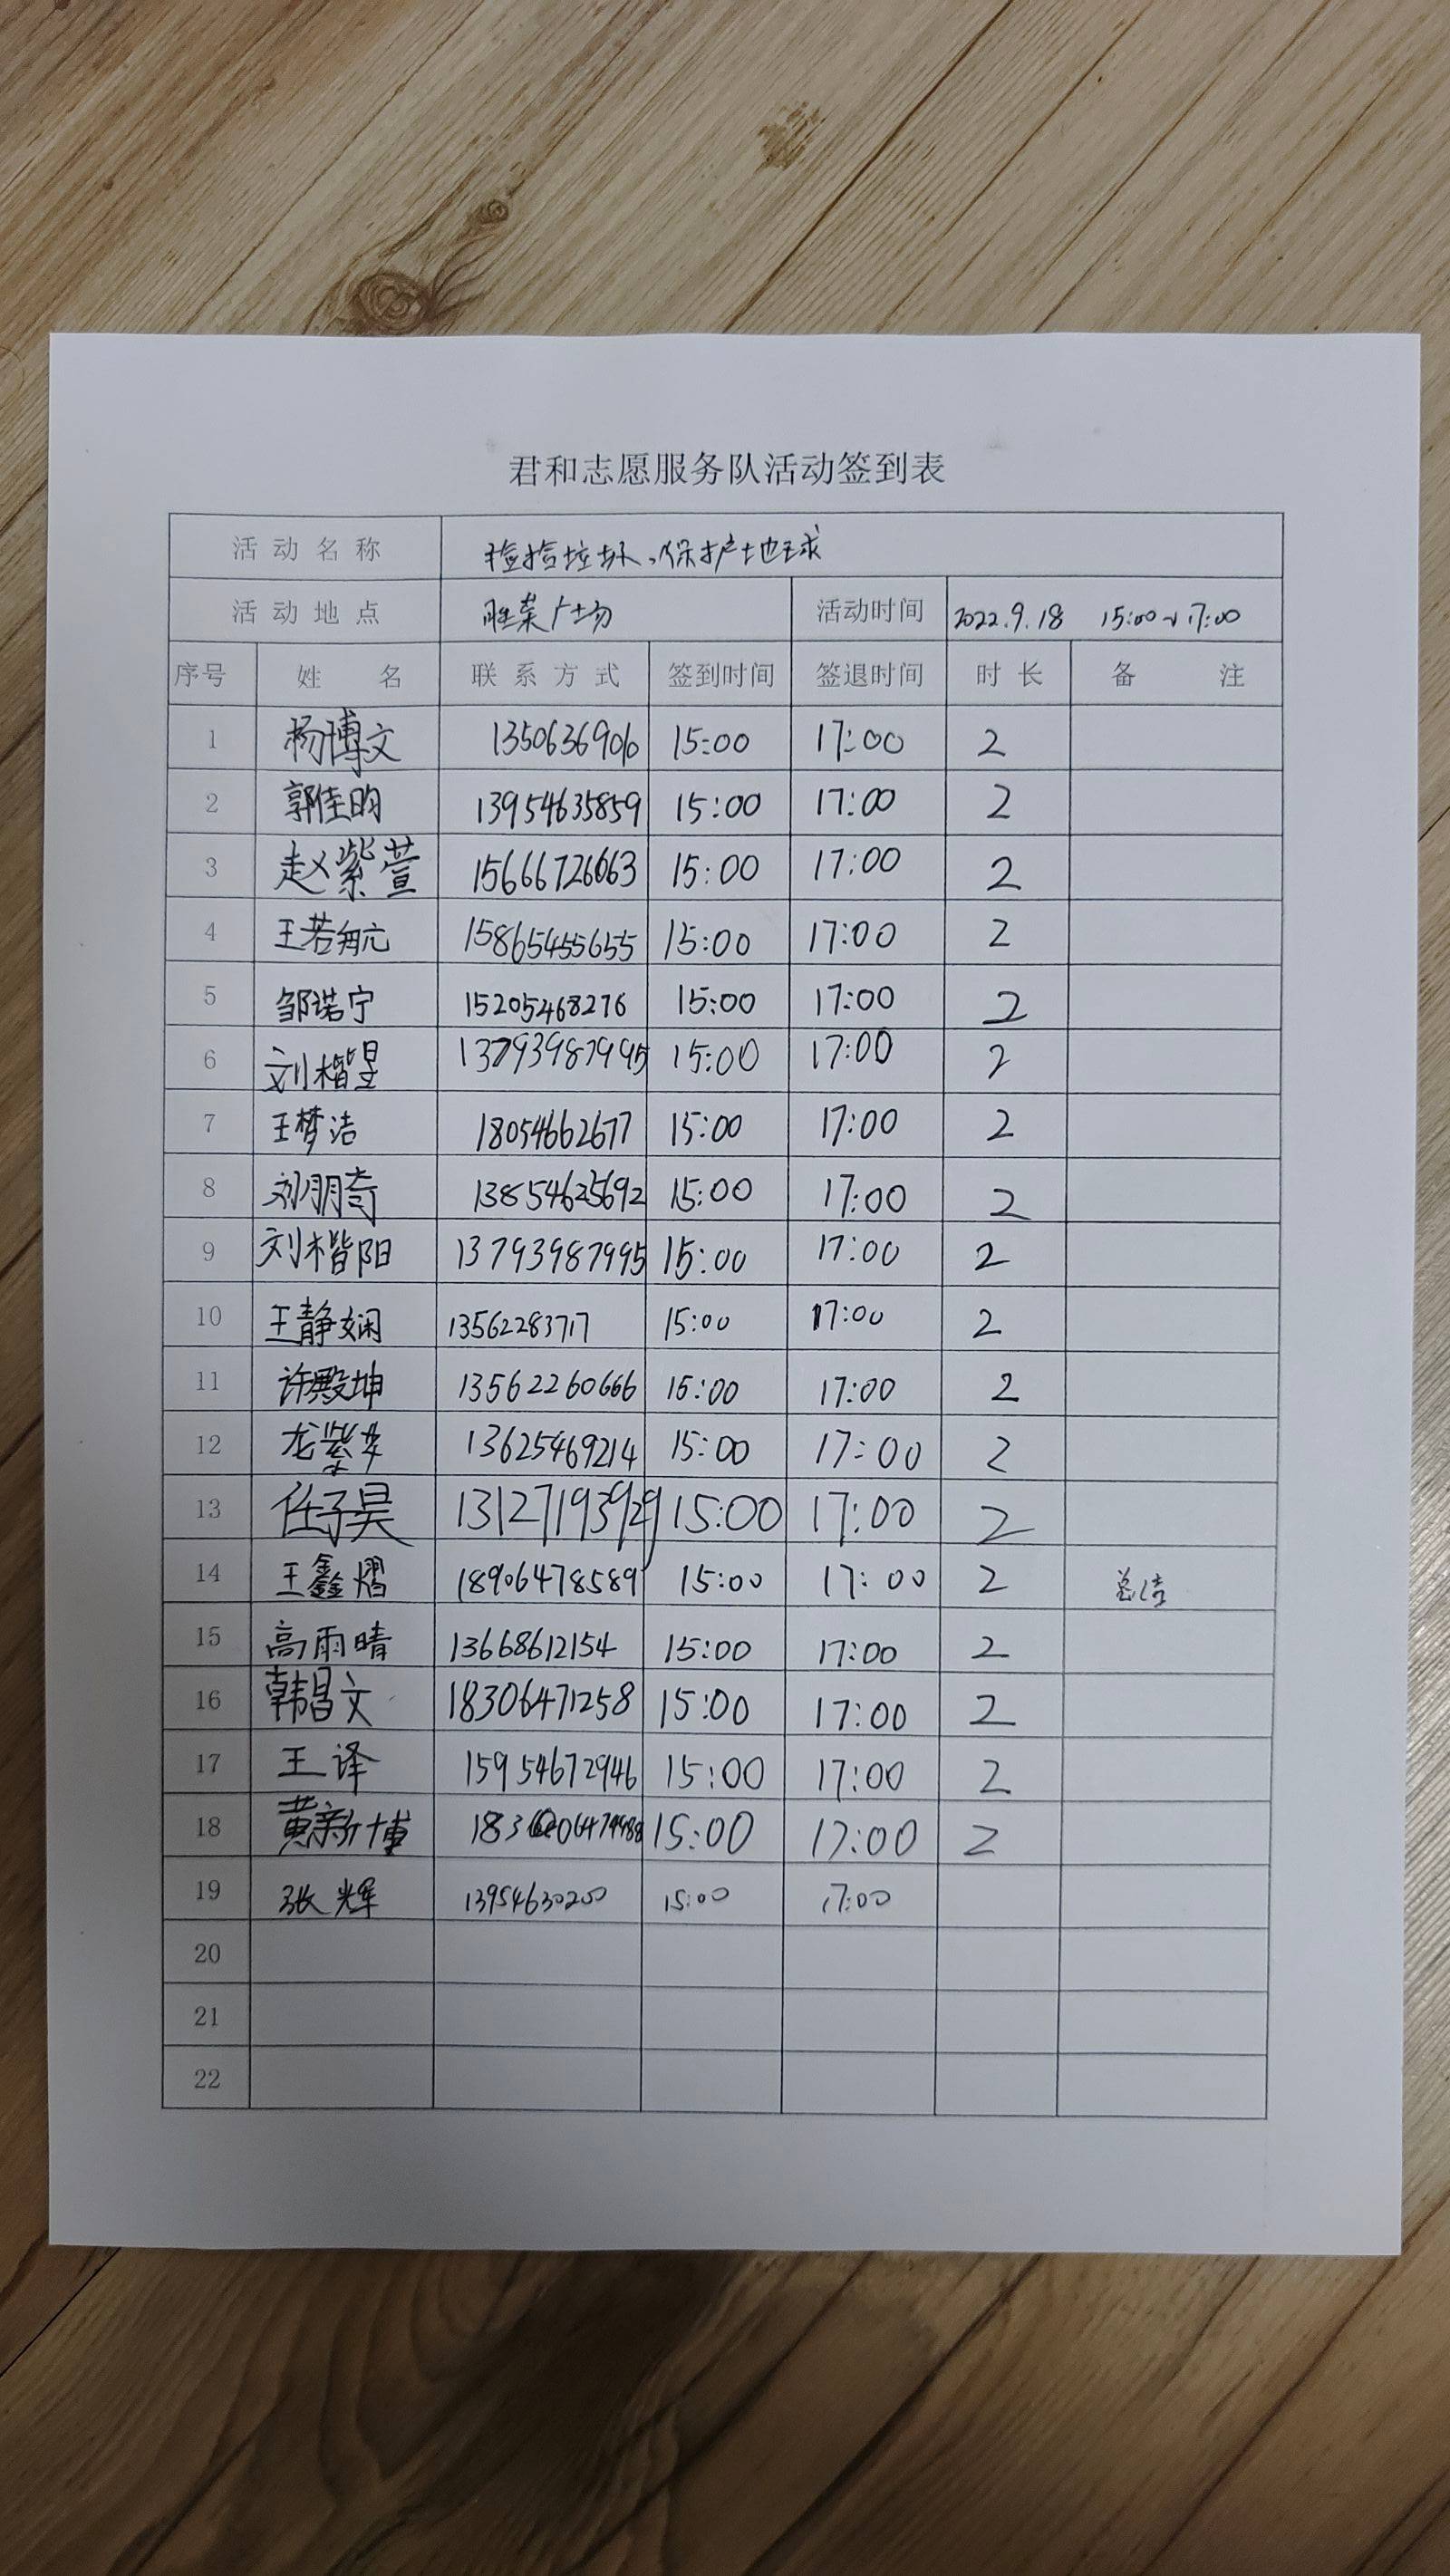 君和志愿服务队活动签到表
活动名称 捡捡垃圾、保护地球
活动地点 胜荣广场 活动时间 2022.9.18 15:00~17:00
序号 姓名 联系方式 签到时间 签退时间 时长 备注
1 杨博文 1350636906 15:00 17:00 2
2 郭佳昀 13954635859 15:00 17:00 2
3 赵紫萱 15666726063 15:00 17:00 2
4 王若航 15865455655 15:00 17:00 2
5 邹诺宁 15205468276 15:00 17:00 2
6 刘楷昱 13793987995 15:00 17:00 2
7 王梦洁 18054662677 15:00 17:00 2
8 刘朋奇 13854625692 15:00 17:00 2
9 刘楷阳 13793987995 15:00 17:00 2
10 王静娴 13562283717 15:00 17:00 2
11 许殿坤 13562260666 15:00 17:00 2
12 龙紫 13625469214 15:00 17:00 2
13 任子昊 13127193929 15:00 17:00 2
14 王鑫熠 18906478589 15:00 17:00 2 总结
15 高雨晴 13668612154 15:00 17:00 2
16 韩昌文 18306471258 15:00 17:00 2
17 王译 15954672946 15:00 17:00 2
18 黄新博 15:00 17:00 2
19 张辉 13954630200 15:00 17:00
20
21
22